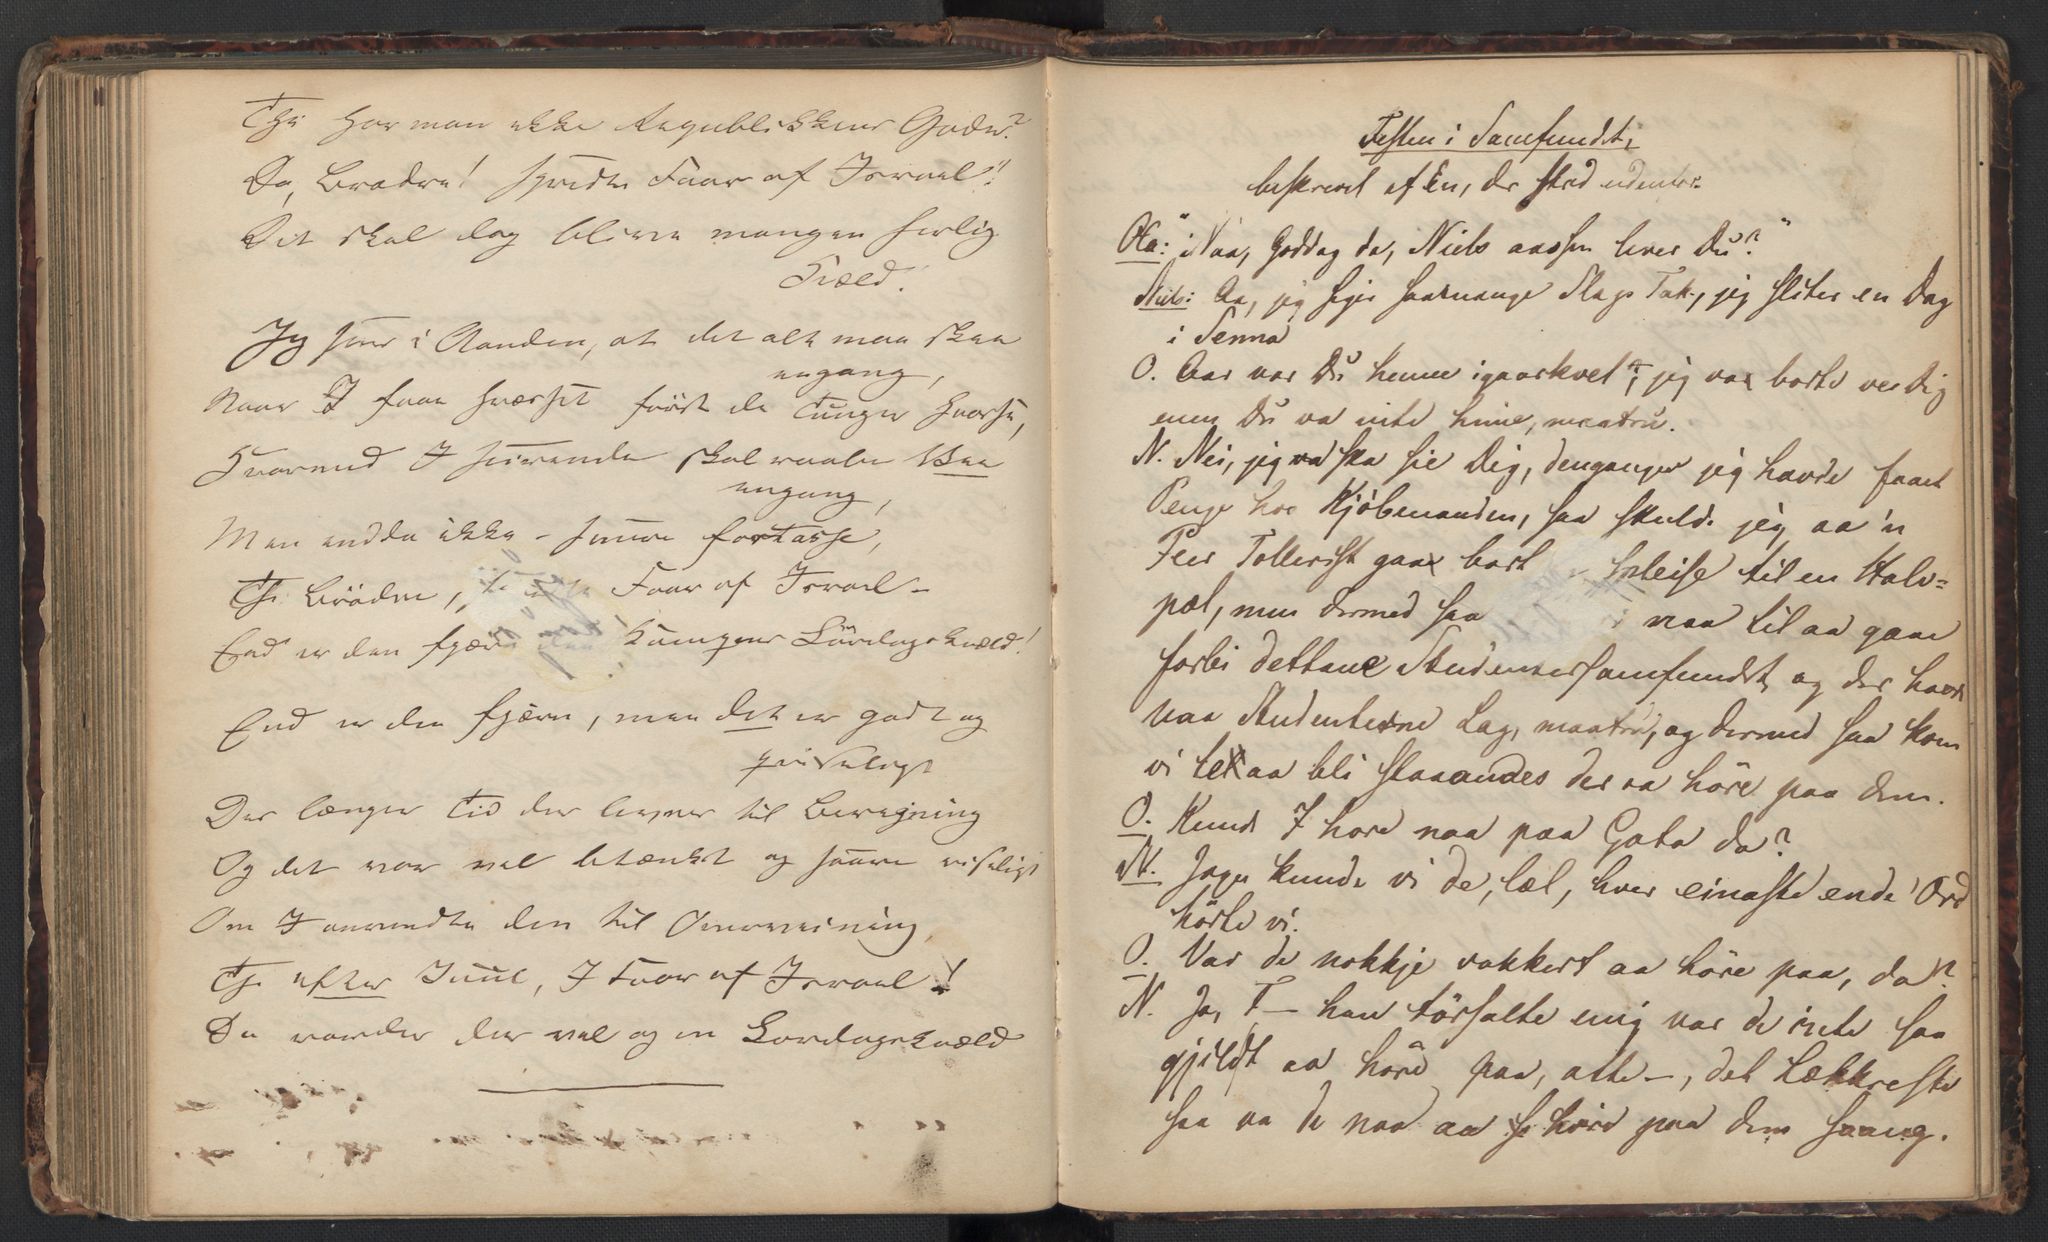 Thi har man ikke Republikkens Goder?
Da, Brødre! spredte Faar af Israel!
Det skal dog blive mangen herlig
Kvæld!
Jeg seer i Aanden, at det alt maa skee
engang,
Naar I faae hvæsset først de Tunger hvasse,
Hvorved I seirende skal raabe Vee
engang,
Men endda ikke – senere fortasse,
Thi Brødre, Faar af Israel –
End er den fjærn Kampens Lördagskvæld!
End er den fjærn, men det er godt og
priseligt
Des længer Tid der levnes til Beregning
Og det var vel betænkt og saare viseligt
Om I anvendte den til Overveining,
Thi efter Juul, I Faar af Israel!
Da vorder der vel og en Lordagskvæld
Festen i Samfundet,
beskrevet af En, der stod udenfor.
Ola: "Naa, Goddag da, Niels aassen lever Du?"
Niels: Aa, jeg sejer saa mange Slags Tak, jeg sliter en Dag
i Senna
O. Aar var Du henne igaarkvel'n, jeg var borte ve Dig
men Du va inte hime, maatru.
N. Nei, jeg ska sie Dig, dengangen jeg havde faaet
Penge hos Kjöbmanden, saa skulde jeg aa 'n
Peer Tollerist gaa bort spleise til en Halv=
pæl, men dermed saa naa til aa gaae
forbi dettane Studentersamfundet, og der havde
naa Studenterne Lag, maatru, og dermed saa kom
vi te aa bli staaandes der aa höre paa dem.
O. Kunde I høre naa paa Gata da?
N. Jagu kunde vi de, læl, hver einaste ende Ord
hörte vi.
O. Var de nokkje vakkert aa höre paa, da?
N. Ja, F– han törsalte mig var de inte saa
gjildt aa höre paa, atte –, det Lækkreste
saa va de naa aa høre paa dem saang.